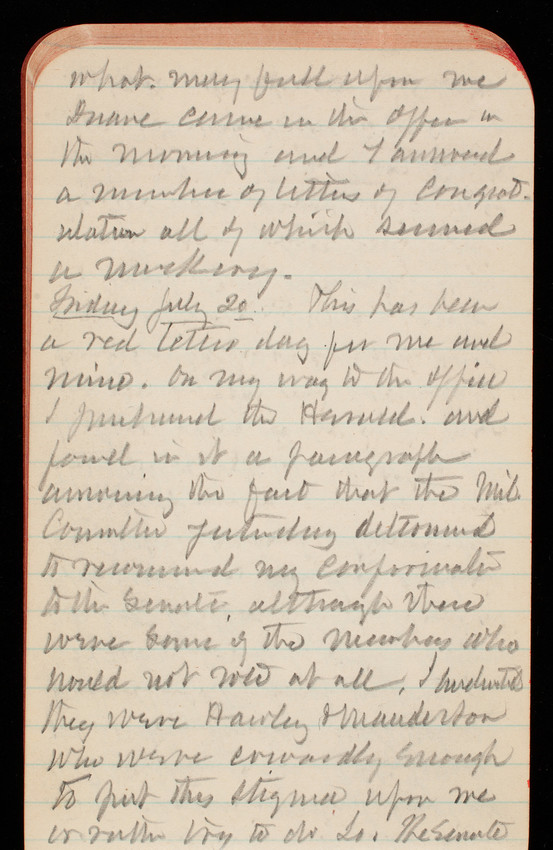 what may fall upon me
Duane came in the office in
the morning and I answered
a number of letters of congrat-
ulation all of which seemed
a mockery.
Friday July 20. This has been
a red letter day for me and
mine. On my way to the office
I purchased the Herald. and
found in it a paragraph
announcing the fact that the Mil.
Committee yesterday determined
to recommend my confirmation
to the Senate, although there
were some of the members who
would not vote at all, I
they were Hawley & Manderson
who were cowardly enough
to put this stigma upon me
or rather try to do so. The Senate